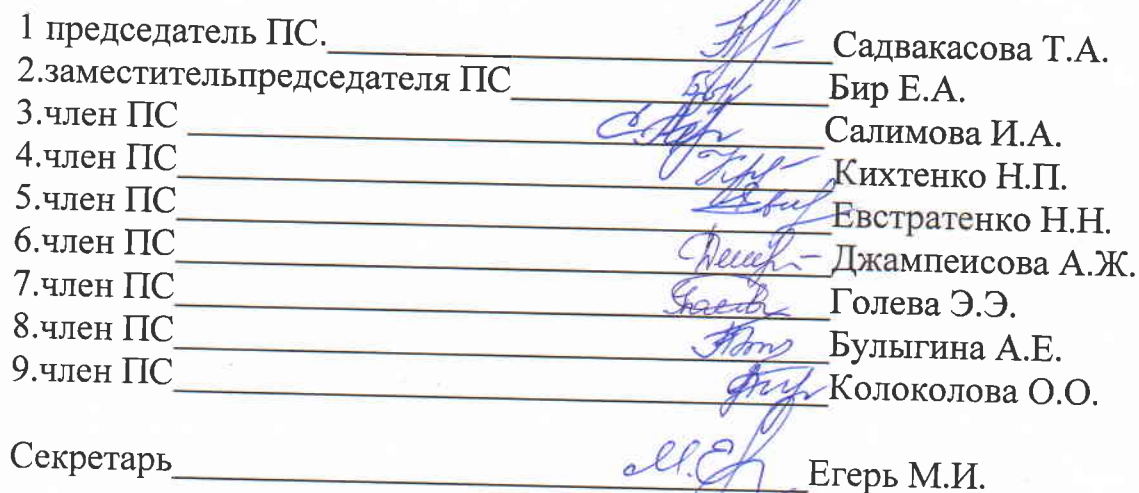 1 председатель ПС.____________________ Садвакасова Т.А.
2.заместительпредседателя ПС____________________ Бир Е.А.
3.член ПС ____________________ Салимова И.А.
4.член ПС____________________ Кихтенко Н.П.
5.член ПС____________________ Евстратенко Н.Н.
6.член ПС____________________ Джампеисова А.Ж.
7.член ПС____________________ Голева Э.Э.
8.член ПС____________________ Булыгина А.Е.
9.член ПС____________________ Колоколова О.О.
Секретарь____________________ Егерь М.И.